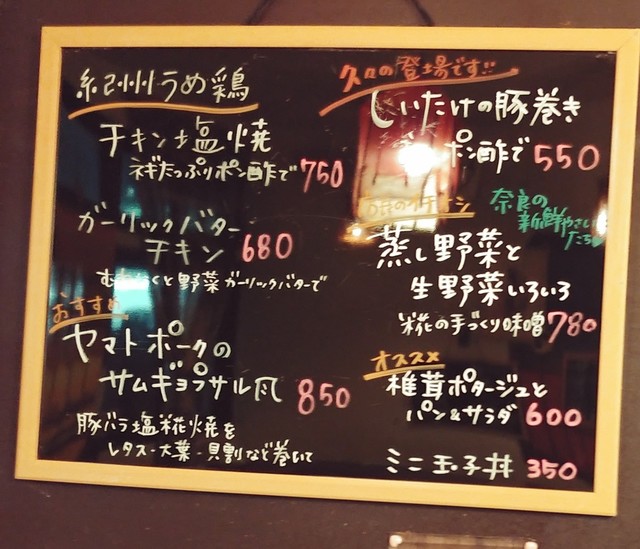 紀州うめ鶏
チキン塩焼
ネギたっぷりポン酢で 750
ガーリックバター
チキン 680
むね肉と野菜ガーリックバターで
おすすめ
ヤマトポークの
サムギョプサル風 850
豚バラ塩糀焼を
レタス・大葉・貝割など巻いて
久々の登場です!!
しいたけの豚巻き
ポン酢で 550
イチオシ
奈良の
新鮮やさい
たち
蒸し野菜と
生野菜いろいろ
糀の手づくり味噌 780
オススメ
椎茸ポタージュと
パン&サラダ 600
ミニ玉子丼 350